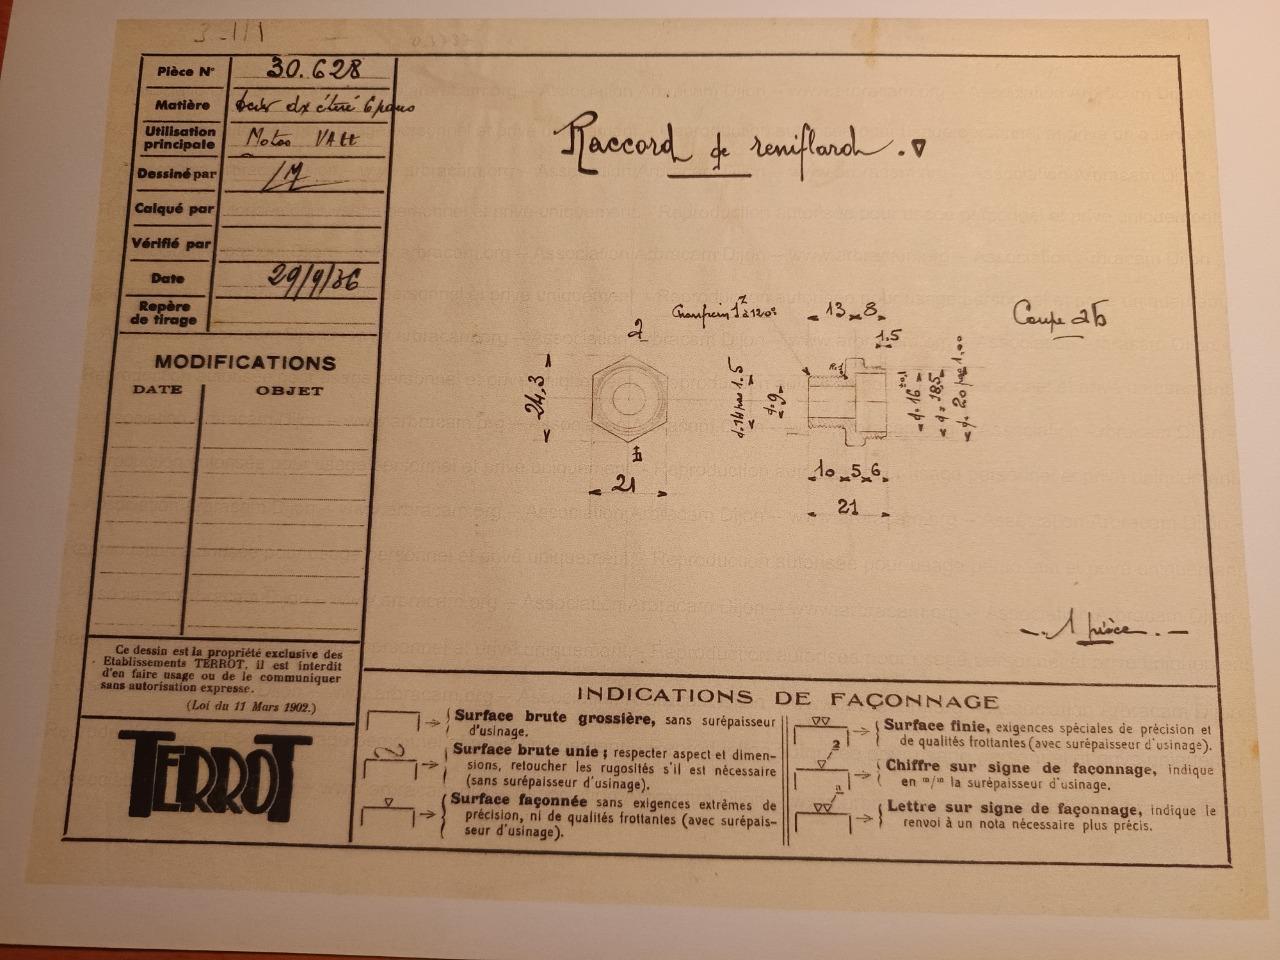 3-111
Pièce N° 30.628
Matière dx étiré 6 pans
Utilisation principale Moteur VATT
Dessiné par
Calqué par
Vérifié par
Date 29/9/36
Repère de tirage
MODIFICATIONS
DATE OBJET
Ce dessin est la propriété exclusive des
Etablissements TERROT, il est interdit
d'en faire usage ou de le communiquer
sans autorisation expresse.
(Loi du 11 Mars 1902.)
TERROT
Raccord de reniflard.
Chanfrein 1 à 120°
13 8
1,5
Coupe ab
a
24,3
b
21
d. 14 pas 1.5
d. 9
d. 16
d. 18,5
d. 20 pas 1,00
10 5 6
21
1 pièce
INDICATIONS DE FAÇONNAGE
Surface brute grossière, sans surépaisseur
d'usinage.
Surface brute unie ; respecter aspect et dimen-
sions, retoucher les rugosités s'il est nécessaire
(sans surépaisseur d'usinage).
Surface façonnée sans exigences extrêmes de
précision, ni de qualités frottantes (avec surépais-
seur d'usinage).
Surface finie, exigences spéciales de précision et
de qualités frottantes (avec surépaisseur d'usinage).
2
Chiffre sur signe de façonnage, indique
en m/m la surépaisseur d'usinage.
a
Lettre sur signe de façonnage, indique le
renvoi à un nota nécessaire plus précis.